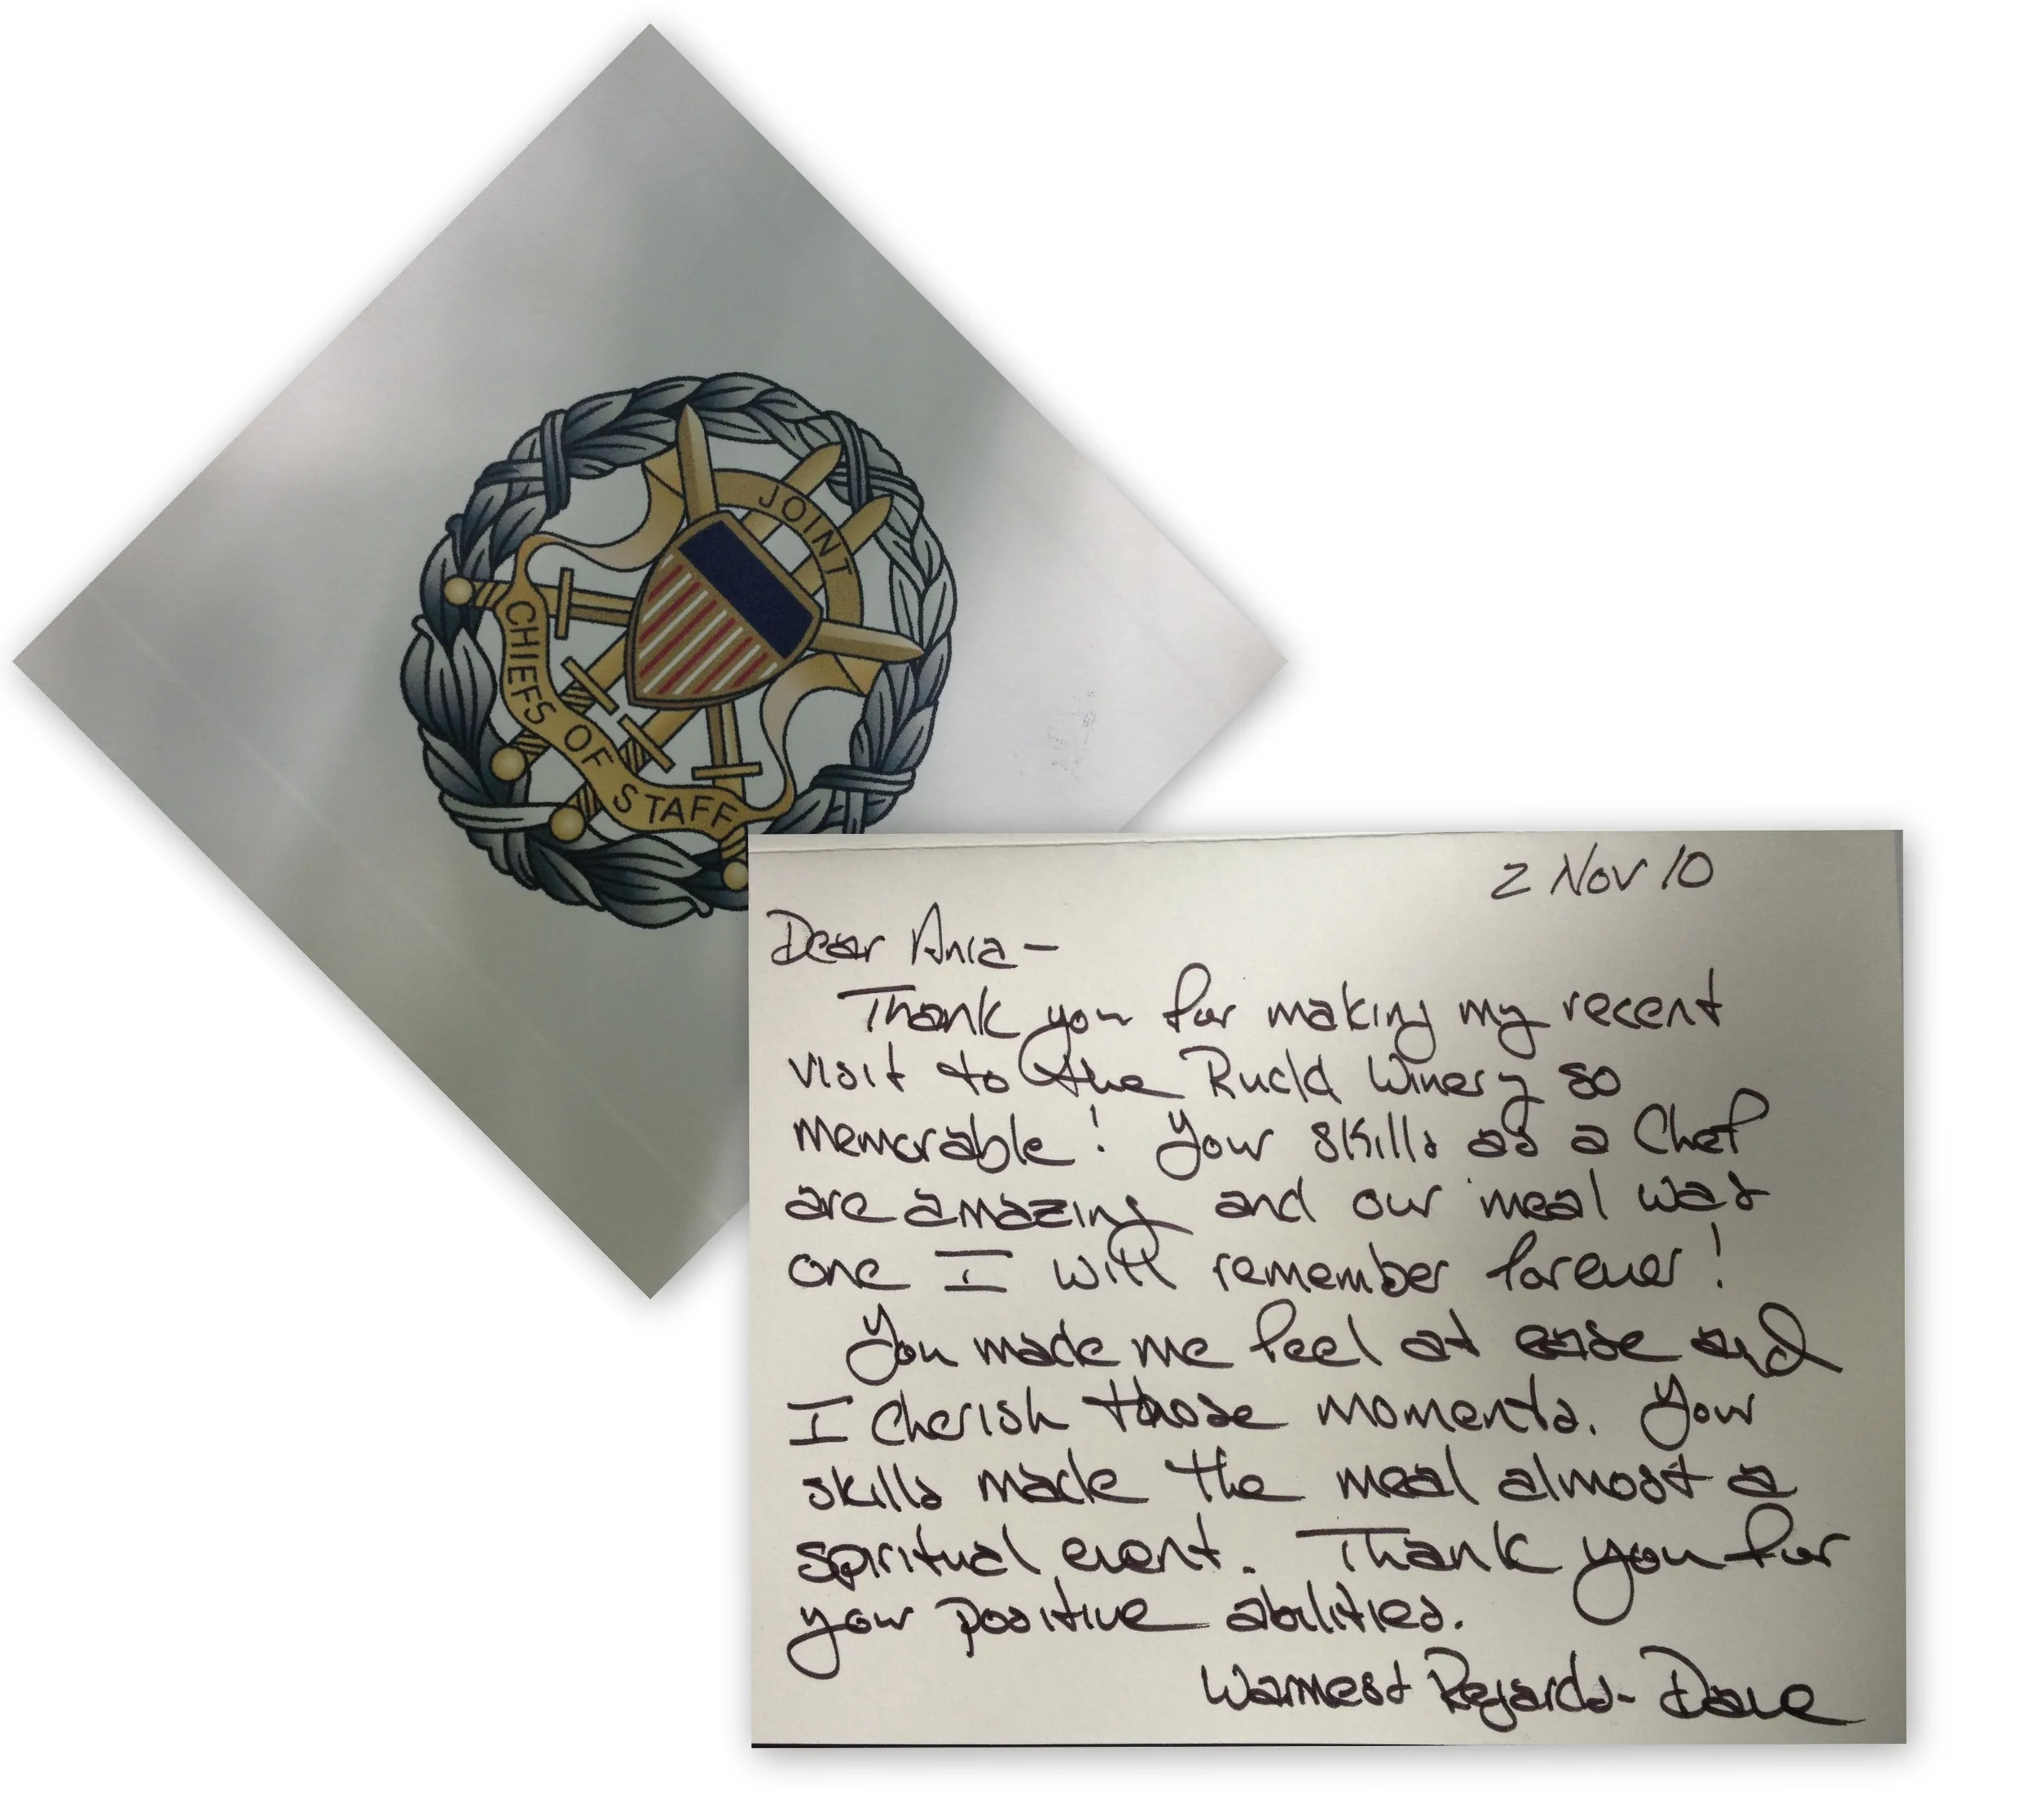 JOINT
CHIEFS OF STAFF
2 Nov 10
Dear Ania-
Thank you for making my recent
visit to the Rudd Winery so
memorable! Your skills as a Chef
are amazing and our meal was
one I will remember forever!
You made me feel at ease and
I cherish those moments. Your
skills made the meal almost a
spiritual event. Thank you for
your positive abilities.
Warmest Regards- Dave